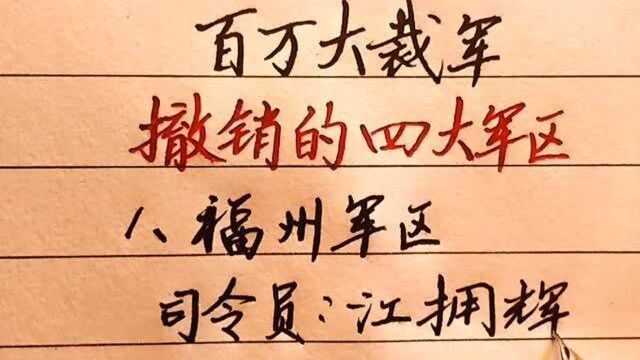 百万大裁军
撤销的四大军区
1、福州军区
司令员:江拥辉